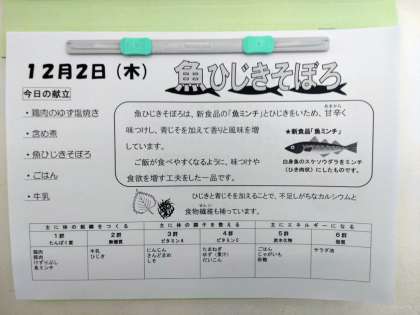 12月2日（木）
魚ひじきそぼろ
今日の献立
・鶏肉のゆず塩焼き
・含め煮
・魚ひじきそぼろ
・ごはん
・牛乳
魚ひじきそぼろは、新食品の「魚ミンチ」とひじきをいため、甘辛く
味つけし、青じそを加えて香りと風味を増
しています。
ご飯が食べやすくなるように、味つけや
食欲を増す工夫をした一品です。
★新食品「魚ミンチ」
白身魚のスケソウダラをミンチ
（ひき肉状）にしたものです。
ひじきと青じそを加えることで、不足しがちなカルシウムと
食物繊維も補っています。
主に体の組織をつくる
主に体の調子を整える
主にエネルギーになる
1群 たんぱく質
2群 無機質
3群 ビタミンA
4群 ビタミンC
5群 炭水化物
6群 脂質
鶏肉
鶏肉
けずりぶし
魚ミンチ
牛乳
ひじき
にんじん
さんどまめ
しそ
たまねぎ
ゆず（果汁）
だいこん
ごはん
じゃがいも
砂糖
サラダ油